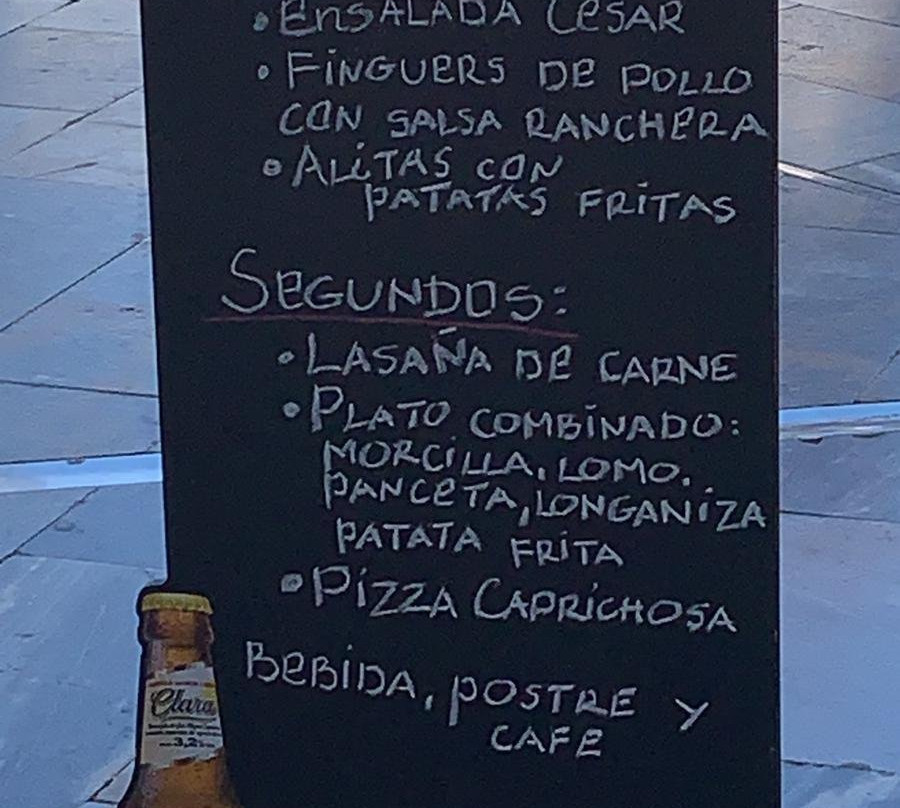 • ENSALADA CESAR
• FINGUERS DE POLLO
CON SALSA RANCHERA
• ALITAS CON
PATATAS FRITAS
SEGUNDOS:
• LASAÑA DE CARNE
• PLATO COMBINADO:
MORCILLA, LOMO.
PANCETA, LONGANIZA
PATATA FRITA
• PIZZA CAPRICHOSA
BEBIDA, POSTRE Y
CAFE
Clara
3,2